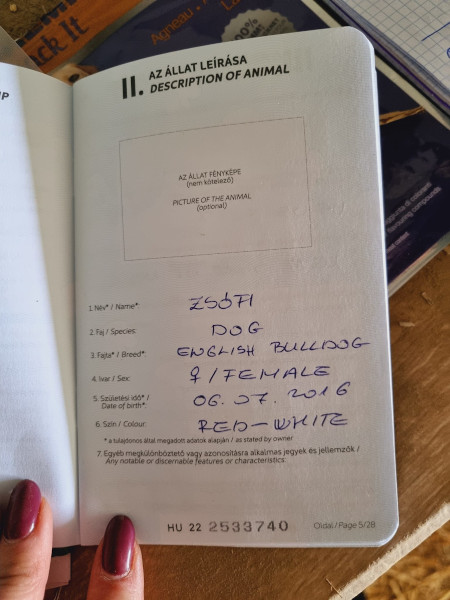 II. AZ ÁLLAT LEÍRÁSA
DESCRIPTION OF ANIMAL
AZ ÁLLAT FÉNYKÉPE
(nem kötelező)
PICTURE OF THE ANIMAL
(optional)
1. Név* / Name*: ZSÓFI
2. Faj / Species: DOG
3. Fajta* / Breed*: ENGLISH BULLDOG
4. Ivar / Sex: ♀/FEMALE
5. Születési idő* /
Date of birth*: 06.07.2016
6. Szín / Colour: RED-WHITE
* a tulajdonos által megadott adatok alapján / as stated by owner
7. Egyéb megkülönböztető vagy azonosításra alkalmas jegyek és jellemzők /
Any notable or discernable features or characteristics:
HU 22 2533740
Oldal / Page 5/28
Agneau
100%